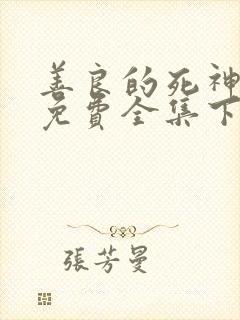 善良的死神
免費全集下
張芳曼